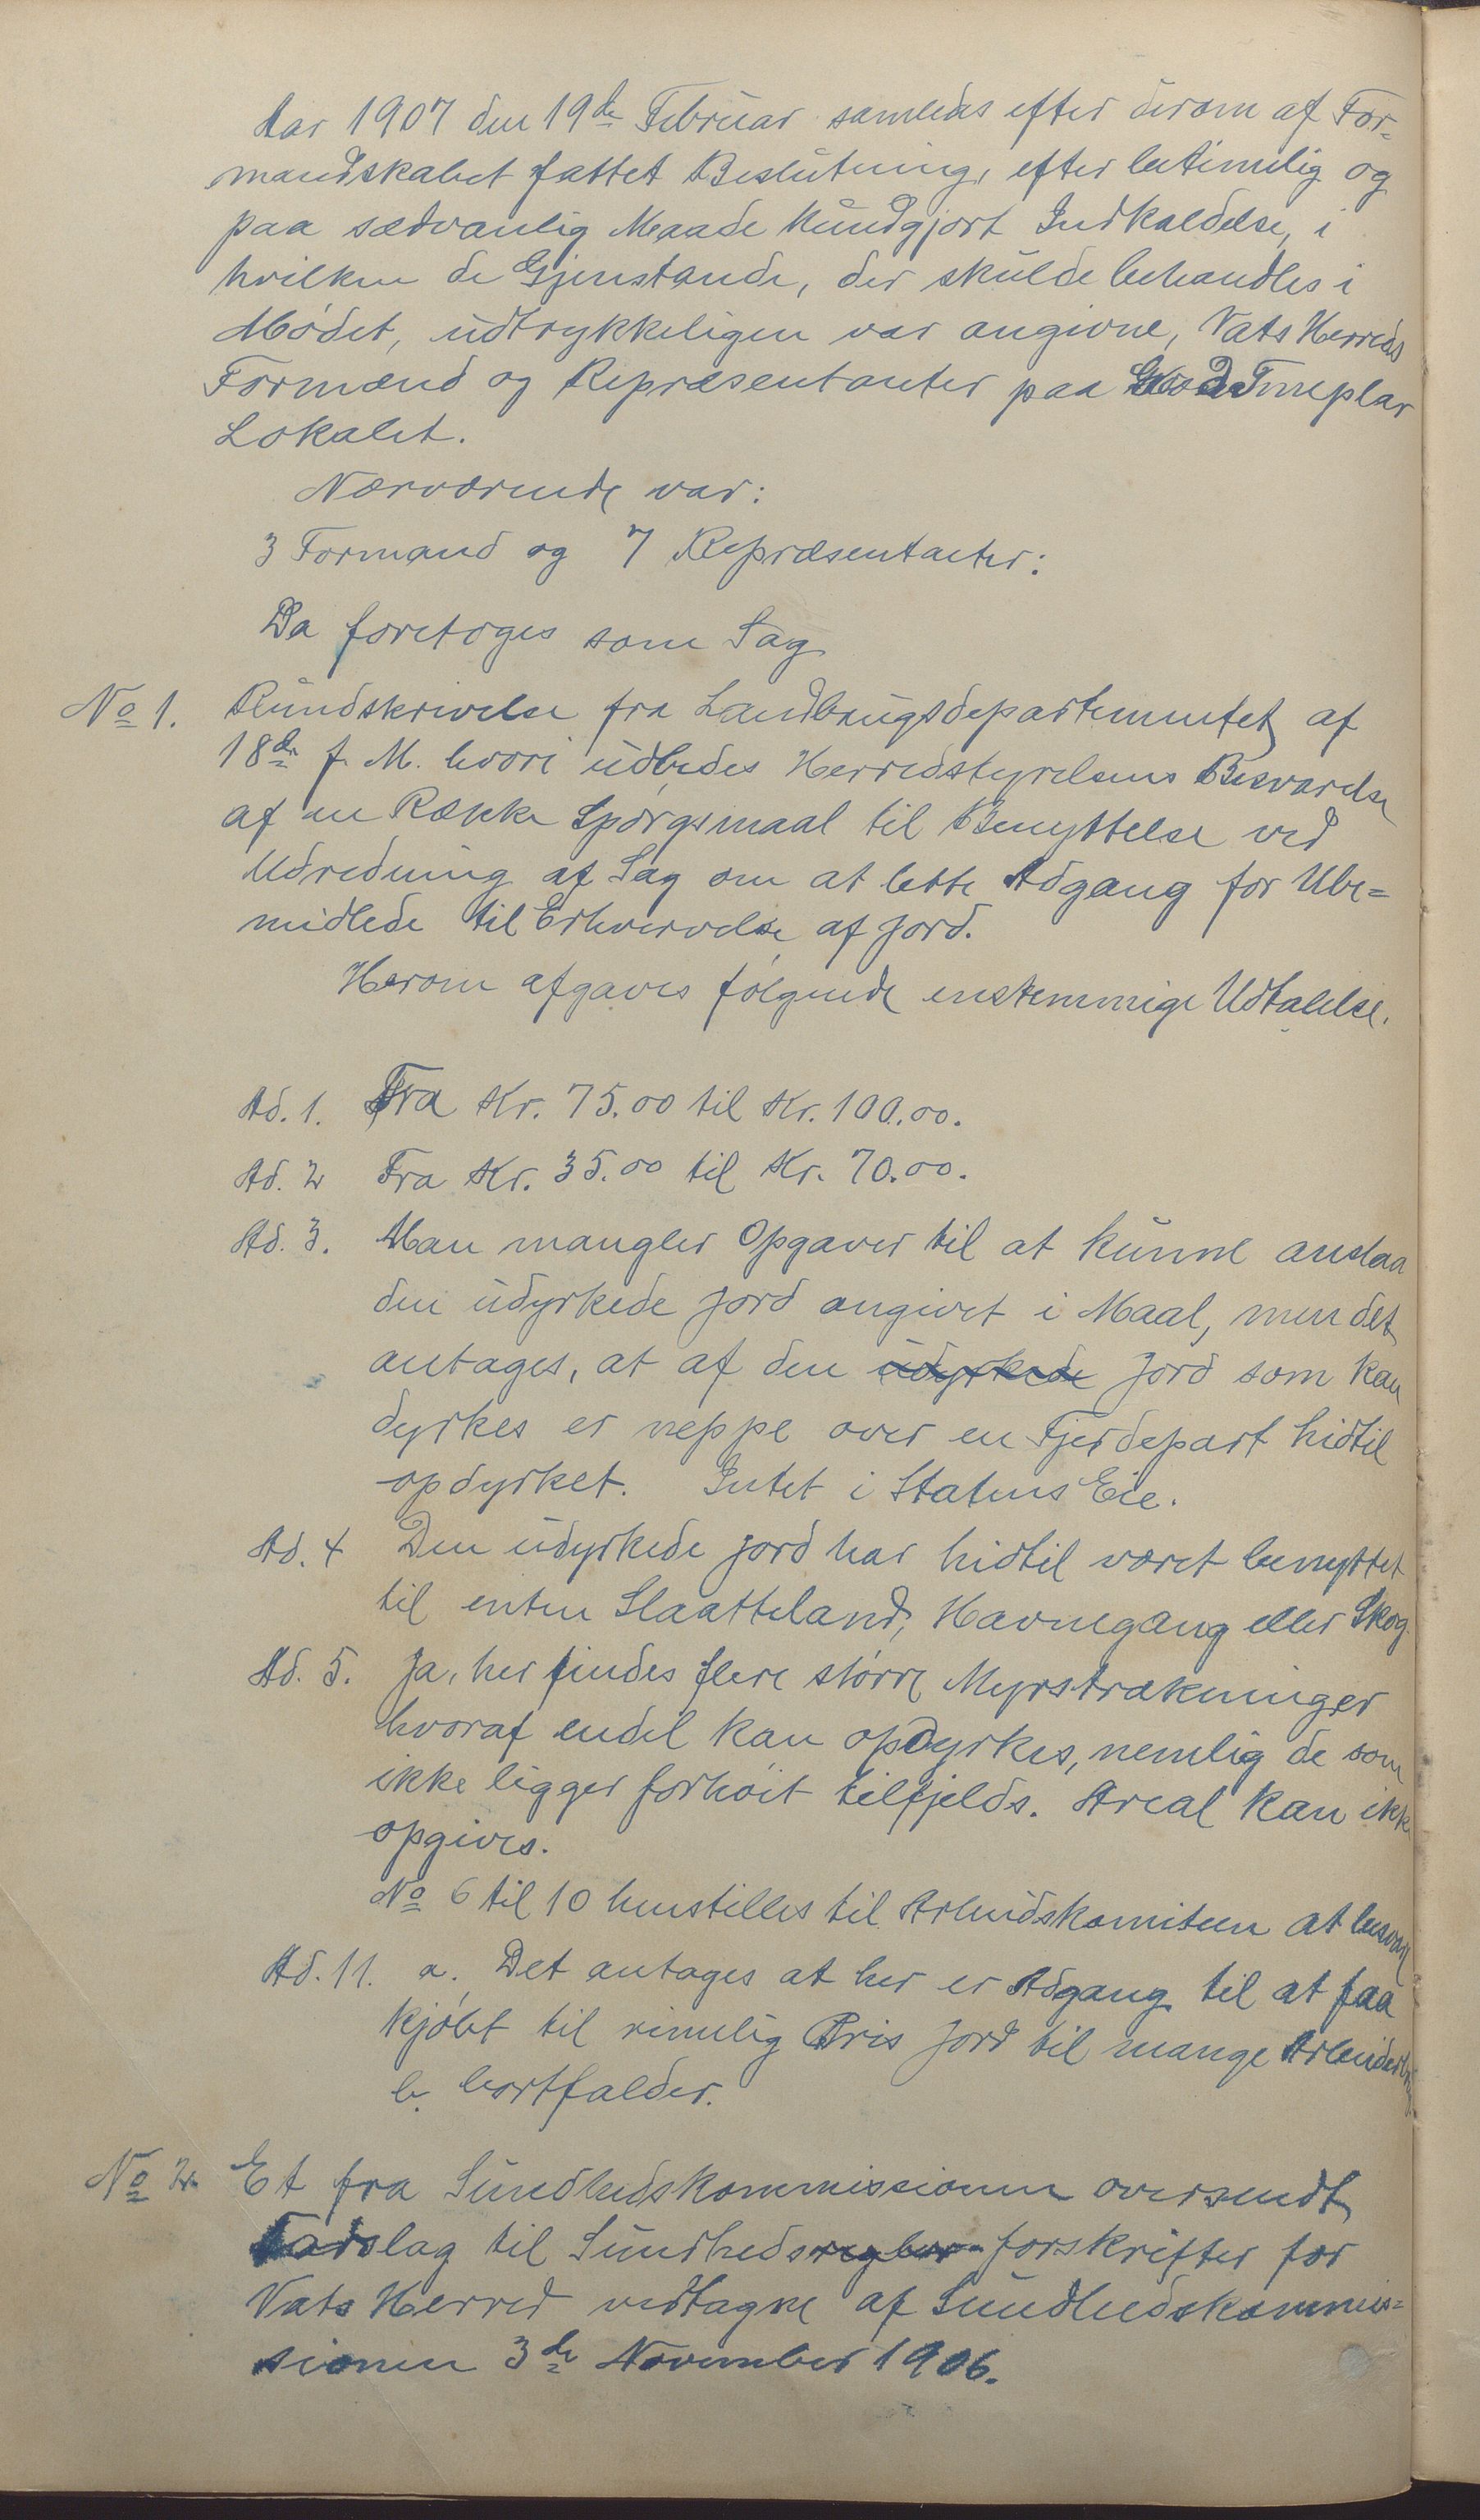 Aar 1907 den 19de Februar samledes efter derom af For-
mandskabet fattet Beslutning, efter betimelig og
paa sædvanlig Maade kundgjort Indkaldelse, i
hvilken de Gjenstande, der skulde behandles i
Mødet, udtrykkeligen var angivne, Vats Herreds
Formænd og Repræsentanter paa Templar
Lokalet.
Nærværende var:
3 Formænd og 7 Repræsentanter:
Da foretoges som Sag
No 1. Rundskrivelse fra Landbrugsdepartementet af
18de f. M. hvori udbedes Herredstyrelsens Besvarelse
af en Række Spørgsmaal til Benyttelse ved
Udredning af Sag om at lette Adgang for Ube-
midlede til Erhvervelse af Jord.
Herom afgaves følgende enstemmige Udtalelse.
Ad. 1. Fra Kr. 75.00 til Kr. 100.00.
Ad. 2 Fra Kr. 35.00 til Kr. 70.00.
Ad. 3. Man mangler Opgaver til at kunne anslaa
den udyrkede Jord angivet i Maal, men det
antages, at af den udyrkede Jord som kan
dyrkes er neppe over en Fjerdepart hidtil
opdyrket. Intet i Statens Eie.
Ad. 4 Den udyrkede Jord har hidtil været benyttet
til enten Slaatteland, Havnegang eller Skog.
Ad. 5. Ja, her findes flere større Myrstrækninger
hvoraf endel kan opdyrkes, nemlig de som
ikke ligger forhøit tilfjelds. Areal kan ikke
opgives.
No 6 til 10 henstilles til Arbeidskomiteen at besvare
Ad. 11. a. Det antages at her er Adgang til at faa
kjøbt til rimelig Pris Jord til mange
b. bortfalder.
No 2. Et fra Sundhedskommissionen oversendt
Forslag til Sundhedsregler-forskrifter for
Vats Herred vedtagne af Sundhedskommis-
sionen 3de November 1906.